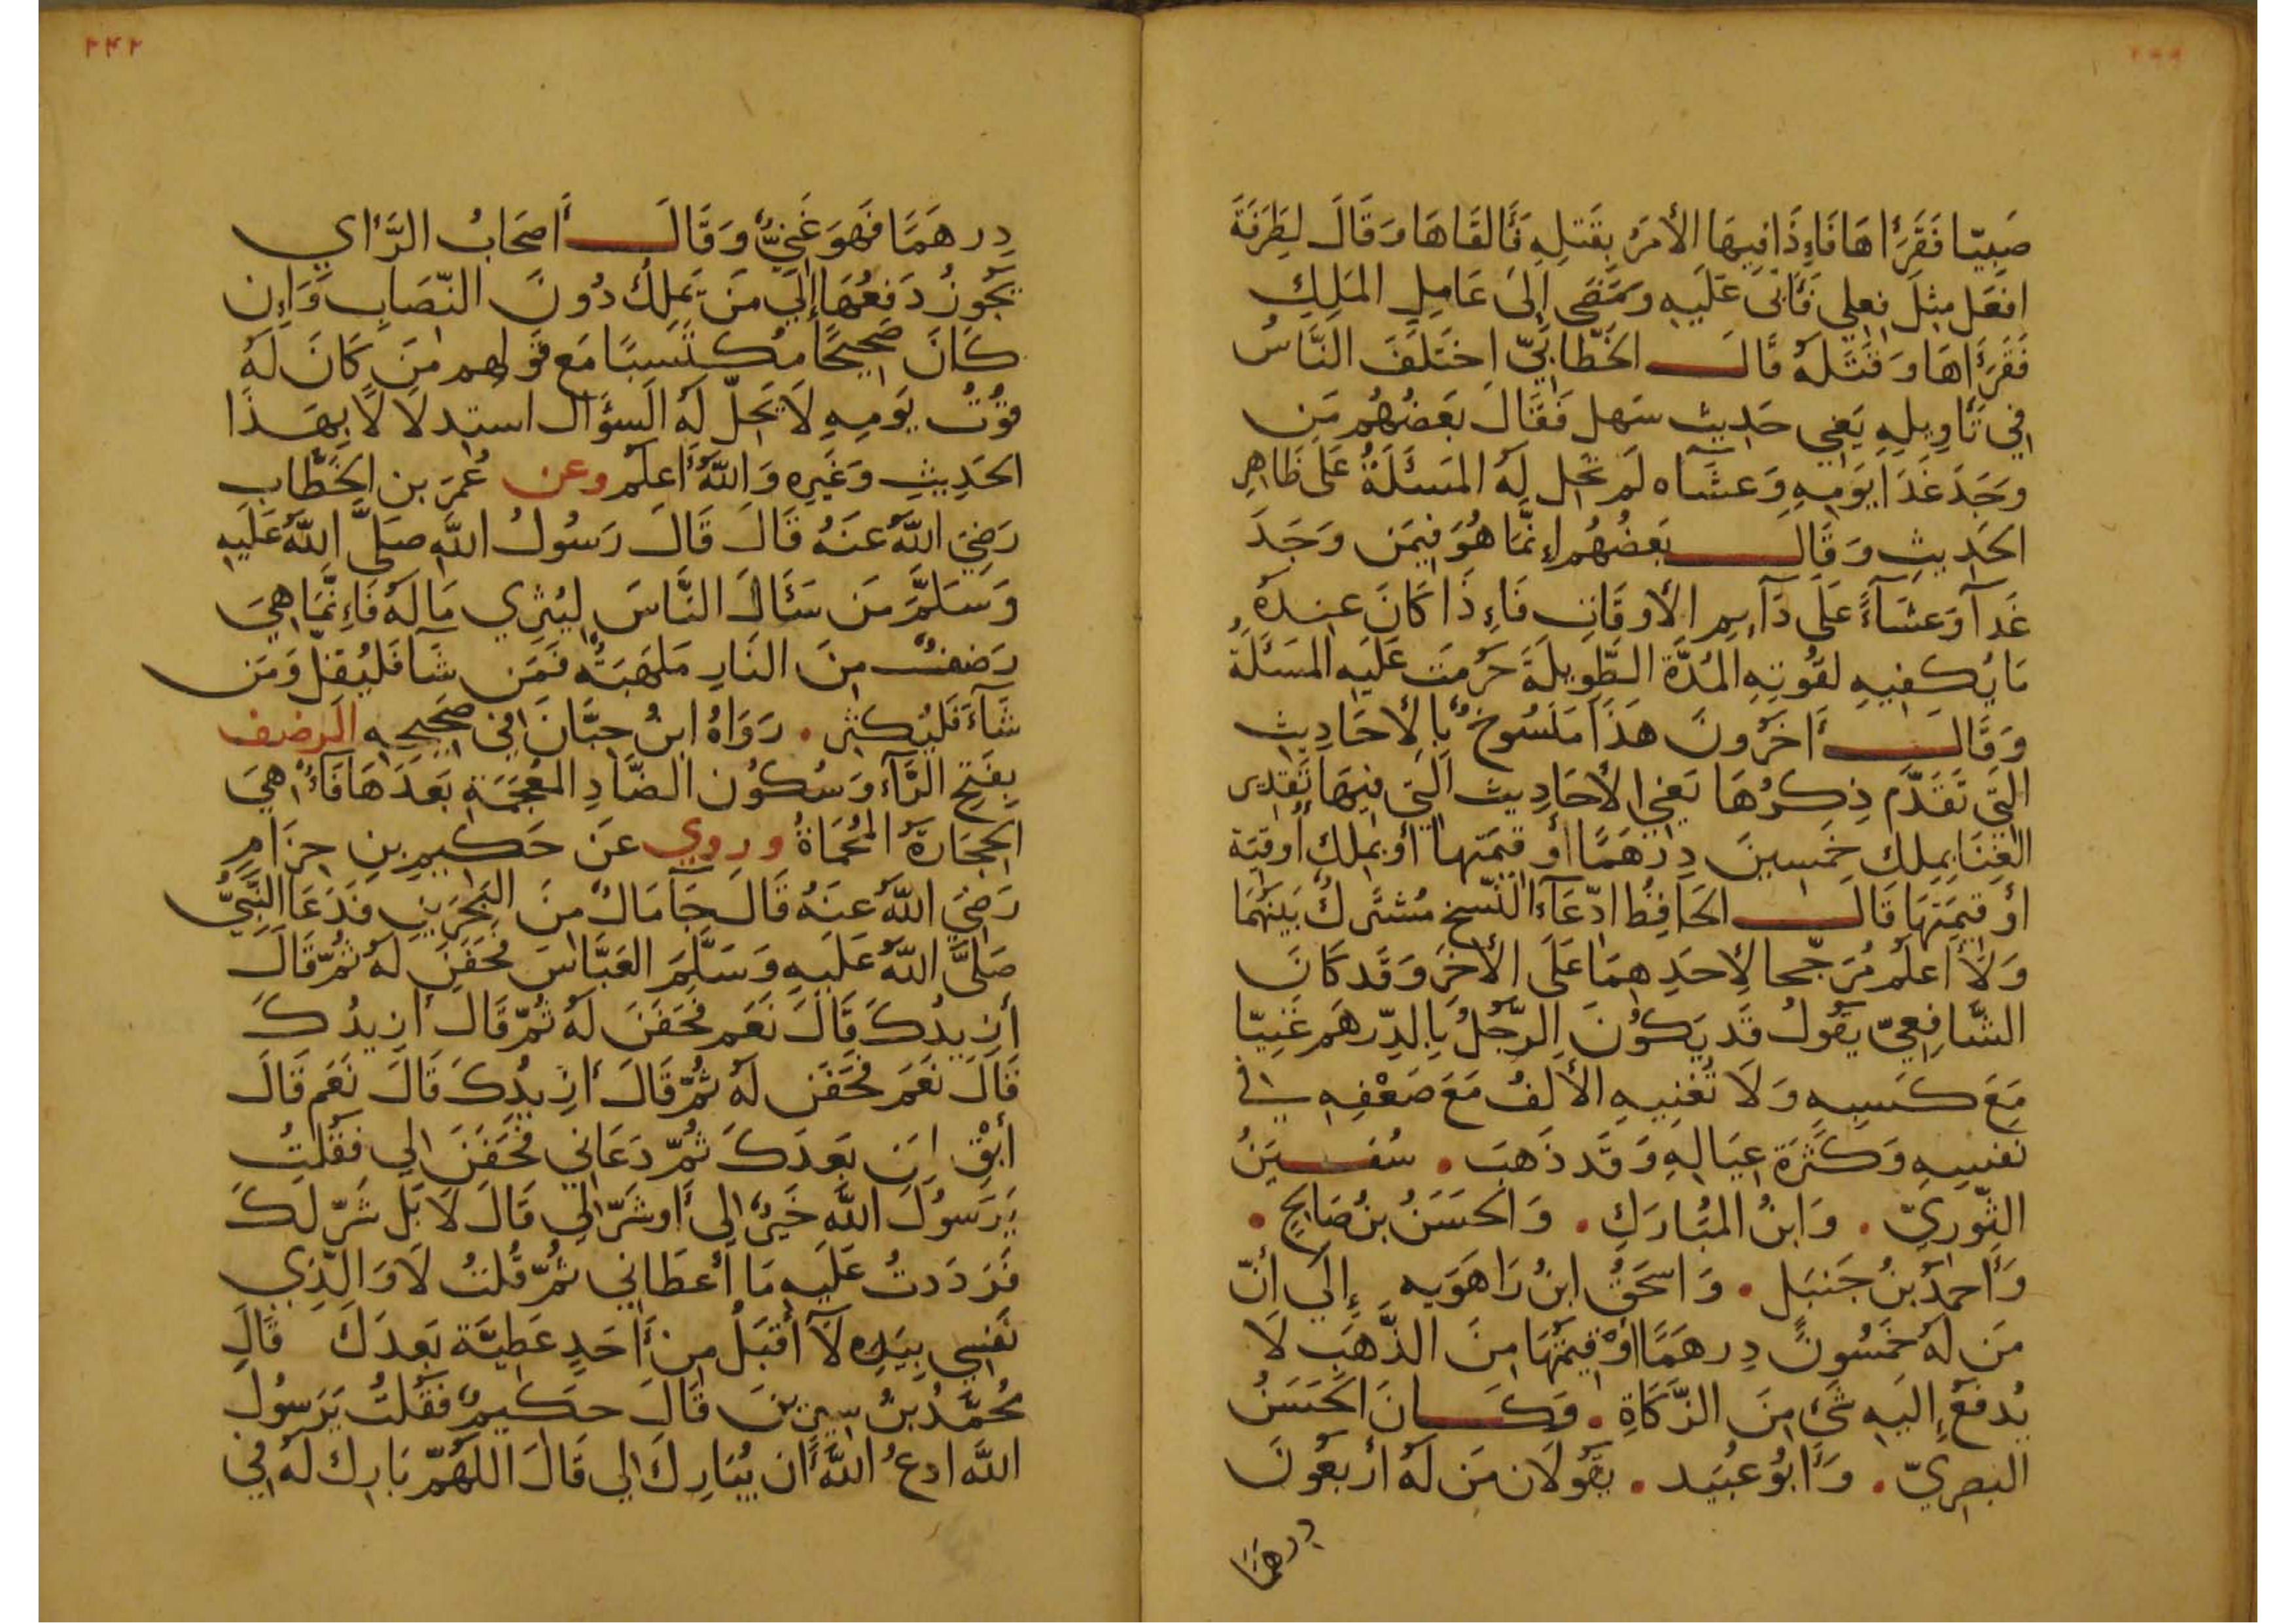 صَبِيّا فَقَرَأَهَا فَإِذَا فِيهَا الأَمْرُ بِقَتلِهِ فَأَلقَاهَا وَقَالَ لِطَرَفَةَ
افعَل مِثلَ فِعلِي فَأَبَى عَلَيهِ وَمَضَى إِلَى عَامِلِ المَلِكِ
فَقَرَأَهَا وَقَتَلَهُ قَالَ الخَطّابِيّ اختَلَفَ النَّاسُ
فِي تَأوِيلِهِ يَعنِي حَدِيث سَهل فَقَالَ بَعضُهُم مَن
وجَدَ غَدَا يَومِهِ وَعَشَآه لَم تَحِل لَهُ المَسئَلَةُ عَلَى ظَاهِرِ
الحَدِيثِ وَقَالَ بَعضُهُم إِنَّمَا هُوَ فِيمَن وَجَدَ
غَدآ وَعَشَآءً عَلَى دَآيِمِ الأَوقَاتِ فَإِذَا كَانَ عِندَهُ
مَا يَكفِيهِ لقُوتِهِ المُدَّةَ الطَّوِيلَةَ حَرُمَت عَلَيهِ المَسئَلَةُ
وَقَالَ أَخَرُونَ هَذَا مَنسُوخٌ بِالأَحَادِيثِ
الَّتِي تَقَدَّم ذِكرُهَا يَعنِي الأَحَادِيث الَّتِي فِيهَا تَقدِير
الغِنَا بِمِلكِ خَمسِينَ دِرهَمًا أَو قِيمَتِهَا أَو بِمِلكِ أُوقِيَّة
أَو قِيمَتِهَا قَالَ الحَافِظُ ادِّعَآءُ النَّسخ مُشتَرِكٌ بَينَهُمَا
وَلَا أَعلَمُ مُرَجِّحا لِأَحَدِهِمَا عَلَى الأَخَر وَقَد كَانَ
الشَّافِعِيّ يَقُولُ قَد يَكُونَ الرَّجُلُ بِالدِّرهَم غَنِيّا
مَعَ كَسبِهِ وَلَا تُغنِيهِ الأَلفُ مَعَ ضَعْفِهِ فِي
نَفسِهِ وَكَثرَة عِيَالِهِ وَقَد ذَهَبَ . سُفيَنُ
الثَّورِيّ . وَابنُ المُبَارَكِ . وَالحَسَنُ بنُ صَالِحٍ .
وَأَحمَدُ بنُ حَنبَل . وَاسحَقُ ابنُ رَاهَوَيه إِلَى أَنّ
مَن لَهُ خَمسُونَ دِرهَمًا أَوْ قِيمَتُهَا مِنَ الذَّهَبِ لَا
يُدفَعُ إِلَيهِ شَئ مِنَ الزَّكَاةِ . وَكَانَ الحَسَنُ
البَصرِيّ . وَأَبُو عُبَيد . يَقُولَان مَن لَهُ أَربَعُونَ
درهَمًا
٢٤٢
دِرهَمًا فَهوَ غَنِيٌّ وَقَالَ أَصحَابُ الرَّاي
يَجُوزُ دَفعُهَا إِلَى مَن يَملِكُ دُونَ النّصَابِ وَإِن
كَانَ صَحِيحًا مُكتَسِبًا مَع قَولِهِم مَن كَانَ لَهُ
قُوتُ يَومِهِ لَا يَحِلّ لَهُ السُؤَال استِدلَالًا بِهَذَا
الحَدِيثِ وَغَيرِهِ وَاللَّهُ أَعلَم وعن عُمَرَ بن الخَطَّابِ
رَضِيَ اللَّهُ عَنهُ قَالَ قَالَ رَسُولُ اللَّهِ صَلَّى اللَّهُ عَلَيهِ
وَسَلَّمَ مَن سَئَالَ النَّاسَ لِيُثرِي مَالَهُ فَإِنَّمَا هِيَ
رَضفٌ مِنَ النَّارِ مَلهَبَةٌ فَمَن شَآ فَليُقِلّ وَمَن
شَآءَ فَليُكثِر . رَوَاهُ ابنُ حِبَّانَ فِي صَحِيحِهِ الرضف
بِفَتحِ الرَّآءِ وَسُكُون الضَّادِ المُعجَمَةِ بَعدَهَا فَآءٌ هِيَ
الحِجَارَةُ المُحمَاةُ وروي عَن حَكِيمِ بنِ حِزَامٍ
رَضِيَ اللَّهُ عَنهُ قَالَ جَآ مَالٌ مِنَ البَحرَينِ فَدَعَا النَّبِيُّ
صَلَّى اللَّهُ عَلَيهِ وَسَلَّمَ العَبَّاسَ فَحَفَنَ لَهُ ثُمّ قَالَ
أَزِيدُكَ قَالَ نَعَم فَحَفَنَ لَهُ ثُمّ قَالَ أَزِيدُكَ
قَالَ نَعَم فَحَفَن لَهُ ثُمّ قَالَ أَزِيدُكَ قَالَ نَعَم قَالَ
أَبْقِ لِمَن بَعدَكَ ثُمّ دَعَانِي فَحَفَنَ لِي فَقُلتُ
يَرَسُولَ اللَّهِ خَيرٌ لِي أَو شَرّ لِي قَالَ لَا بَل شَرّ لَكَ
فَرَدَدتُ عَلَيهِ مَا أَعطَانِي ثُمّ قُلتُ لَا وَالَّذِي
نَفسِي بِيَدِهِ لَآ أَقبَلُ مِن أَحَدٍ عَطِيَّة بَعدَكَ قَالَ
مُحَمَّدُ بنُ سِيرِينَ قَالَ حَكِيمٌ فَقُلتُ يَرَسُولَ
اللَّهِ ادعُ اللَّهَ أَن يُبَارِكَ لِي قَالَ اللَّهُمّ بَارِك لَهُ فِي